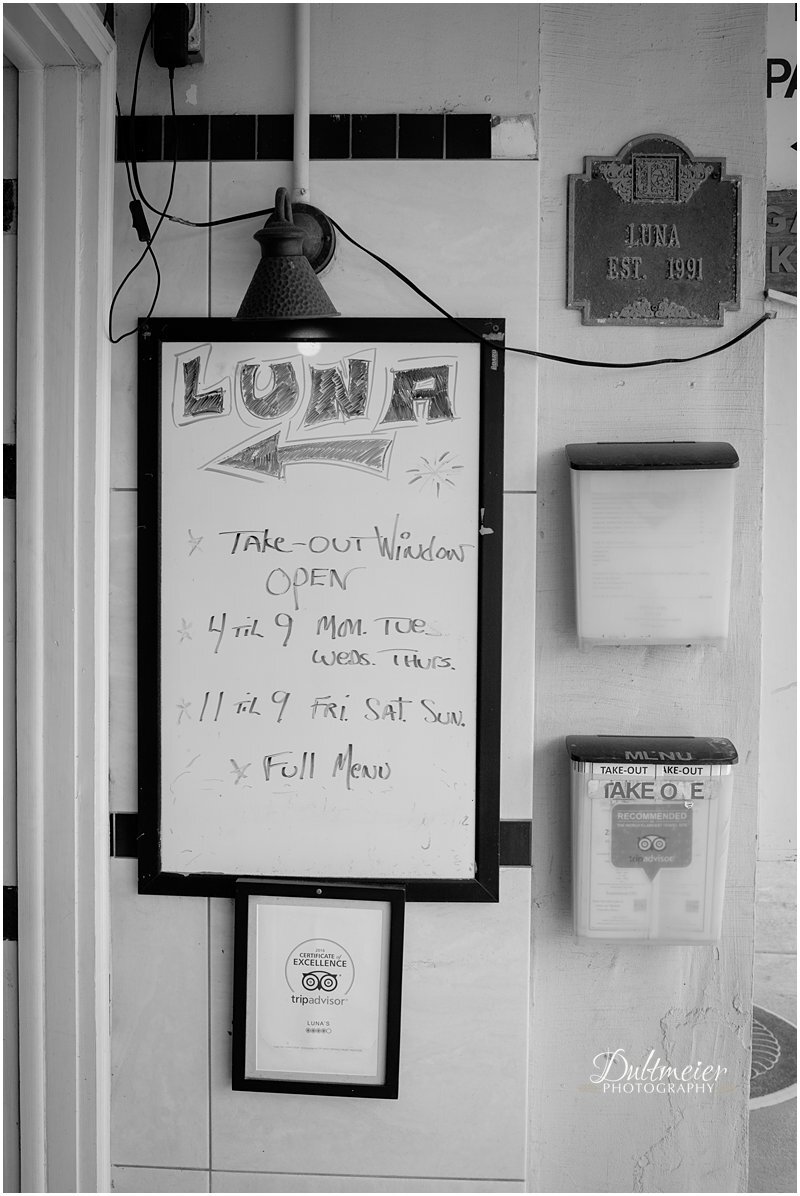 PA
LUNA
EST. 1991
LUNA
* TAKE-OUT WINDOW
OPEN
* 4 TIL 9 MON. TUES
WEDS. THURS.
* 11 TIL 9 FRI. SAT. SUN.
* FULL MENU
MENU
TAKE-OUT AKE-OUT
TAKE O E
RECOMMENDED
tripadvisor
CERTIFICATE of
EXCELLENCE
tripadvisor
LUNA'S
Dultmeier
PHOTOGRAPHY